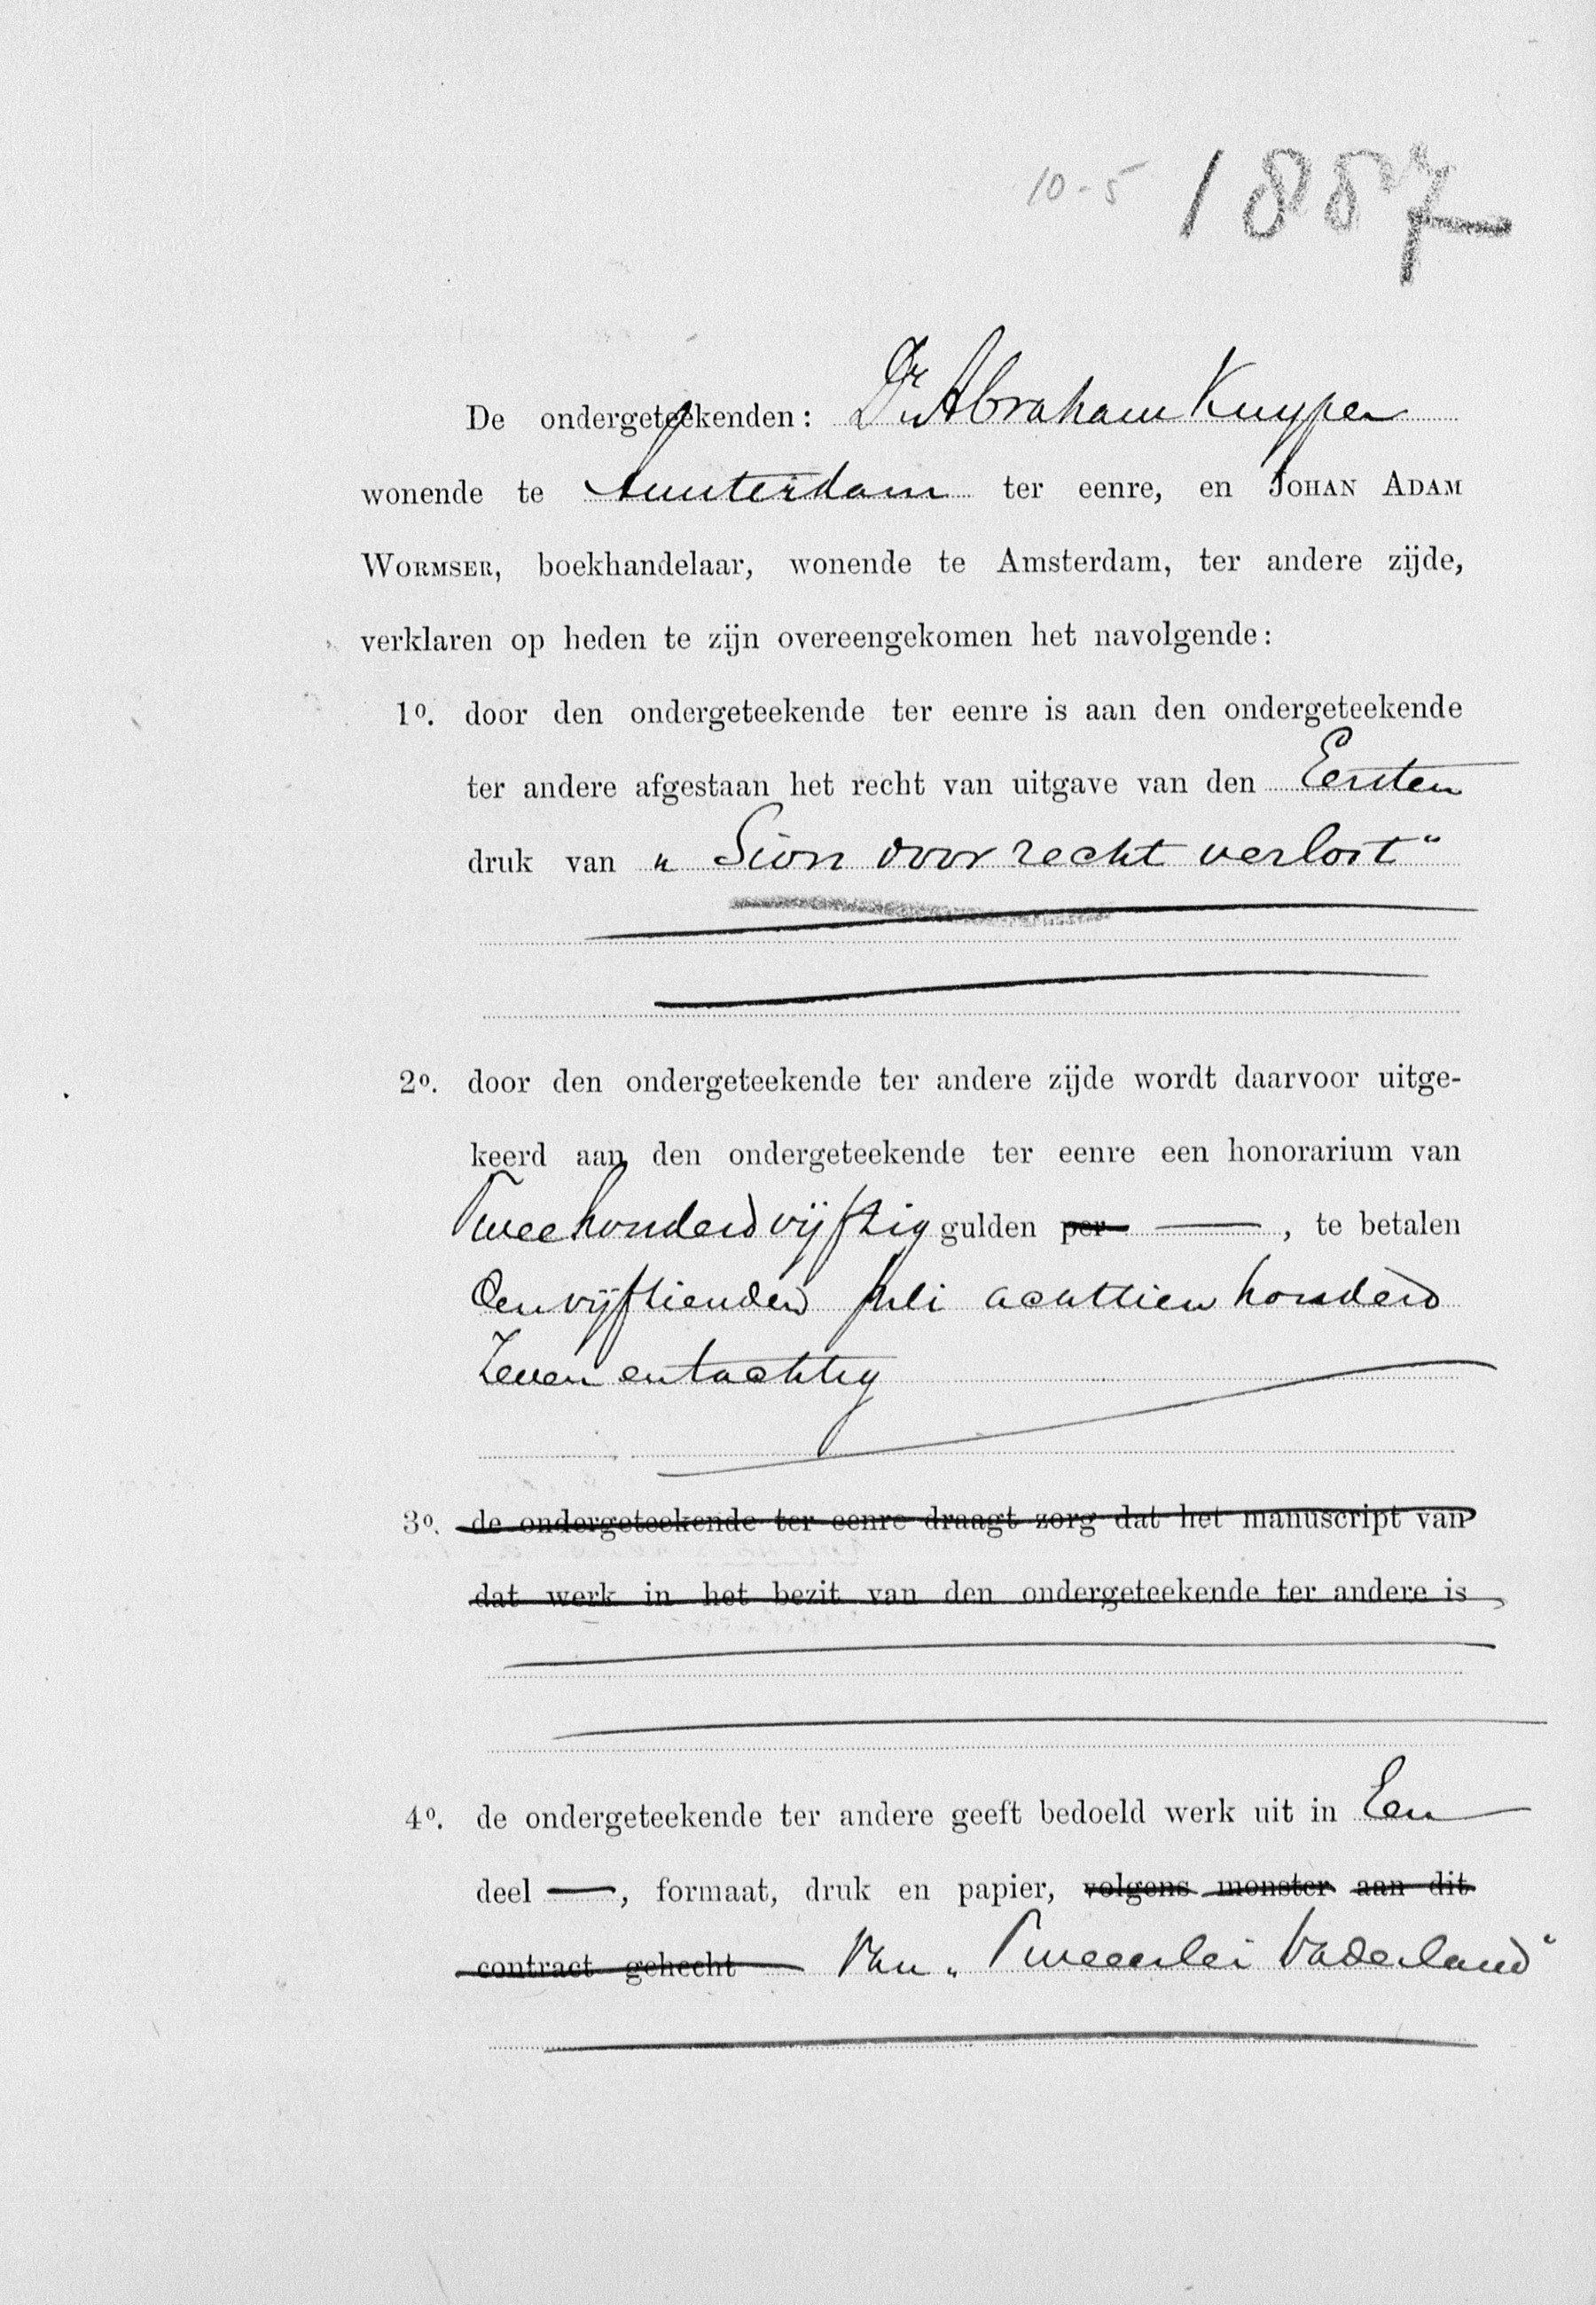 10-5 1887
De ondergeteekenden: Dr Abraham Kuyper
wonende te Amsterdam ter eenre, en JOHAN ADAM
WORMSER, boekhandelaar, wonende te Amsterdam, ter andere zijde,
verklaren op heden te zijn overeengekomen het navolgende:
1o. door den ondergeteekende ter eenre is aan den ondergeteekende
ter andere afgestaan het recht van uitgave van den Eersten
druk van „Sion door recht verlost“
2o. door den ondergeteekende ter andere zijde wordt daarvoor uitge-
keerd aan den ondergeteekende ter eenre een honorarium van
Tweehonderd vijftig gulden per —, te betalen
den vijftienden Juli achttien honderd
Zeven en tachtig
3o. de ondergeteekende ter eenre draagt zorg dat het manuscript van
dat werk in het bezit van den ondergeteekende ter andere is
4o. de ondergeteekende ter andere geeft bedoeld werk uit in Een
deel —, formaat, druk en papier, volgens monster aan dit
contract gehecht Van „Tweeerlei Vaderland“